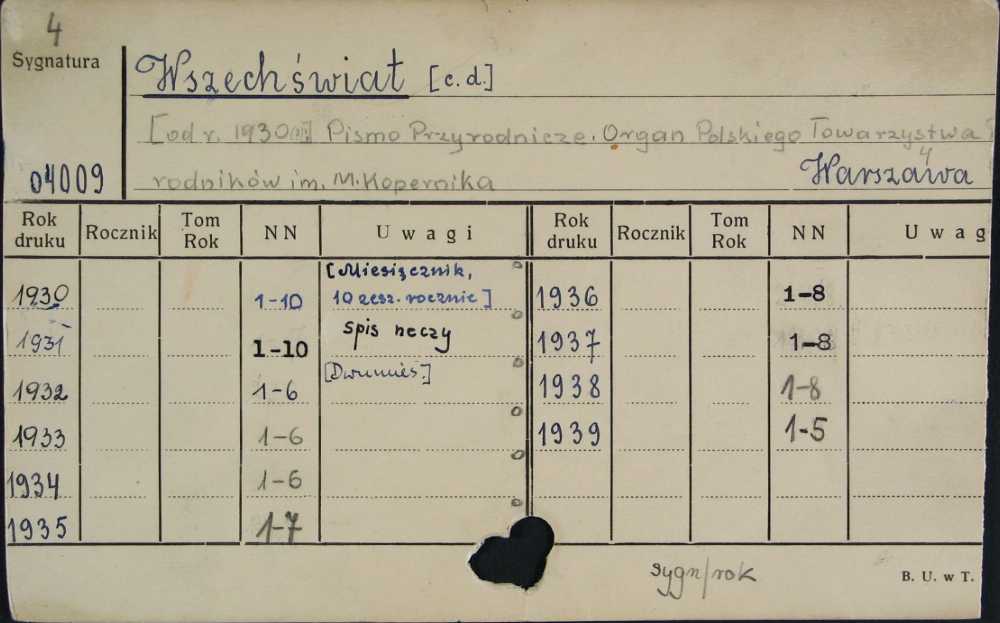 4
Sygnatura
Wszechświat [c.d.]
[od r. 1930] Pismo Przyrodnicze. Organ Polskiego Towarzystwa
04009
rodników im. M. Kopernika
4
Warszawa
Rok druku Rocznik Tom Rok NN Uwagi Rok druku Rocznik Tom Rok NN Uwag
1930 1-10 [Miesięcznik, 10 zesz. rocznie] 1936 1-8
1931 1-10 spis rzeczy 1937 1-8
1932 1-6 [Dwumies.] 1938 1-8
1933 1-6 1939 1-5
1934 1-6
1935 1-7
sygn/rok
B. U. w T.